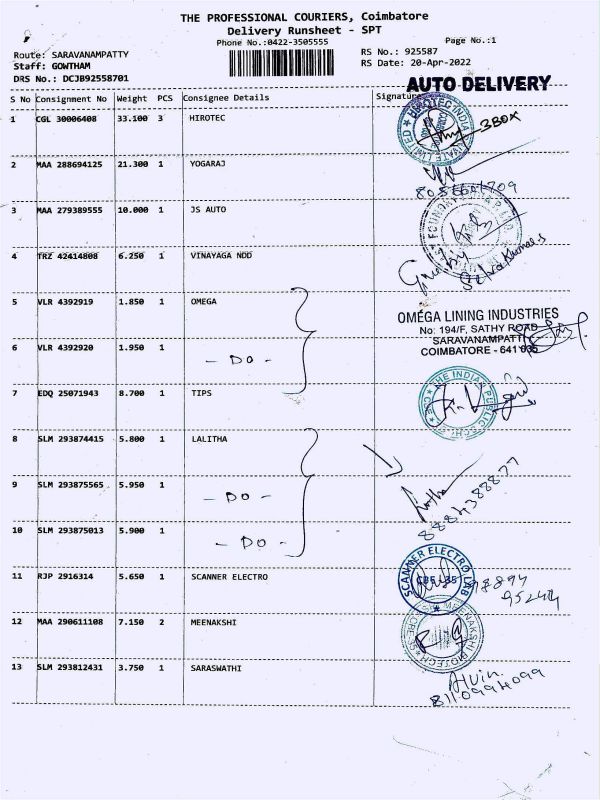 THE PROFESSIONAL COURIERS, Coimbatore
Delivery Runsheet - SPT
Phone No.:0422-3505555
Page No.:1
Route: SARAVANAMPATTY
RS No.: 925587
Staff: GOWTHAM
RS Date: 20-Apr-2022
DRS No.: DCJB92558701
AUTO DELIVERY
S No Consignment No Weight PCS Consignee Details Signature
1 CGL 30006408 33.100 3 HIROTEC
HIROTEC INDIA
3BOX
2 MAA 288694125 21.300 1 YOGARAJ
3 MAA 279389555 10.000 1 JS AUTO
4 TRZ 42414808 6.250 1 VINAYAGA NDD
Selvakumar
5 VLR 4392919 1.850 1 OMEGA
OMEGA LINING INDUSTRIES
No: 194/F, SATHY ROAD
SARAVANAMPATTI
COIMBATORE - 641 035
6 VLR 4392920 1.950 1 - DO -
7 EDQ 25071943 8.700 1 TIPS
THE INDIAN PUBLIC SCHOOL
8 SLM 293874415 5.800 1 LALITHA
9 SLM 293875565 5.950 1 - DO -
8884388877
10 SLM 293875013 5.900 1 - DO -
11 RJP 2916314 5.650 1 SCANNER ELECTRO
SCANNER ELECTRO LAB
CBE-35
12 MAA 290611108 7.150 2 MEENAKSHI
MEENAKSHI BIOTECH
13 SLM 293812431 3.750 1 SARASWATHI
Alvin
8110994099